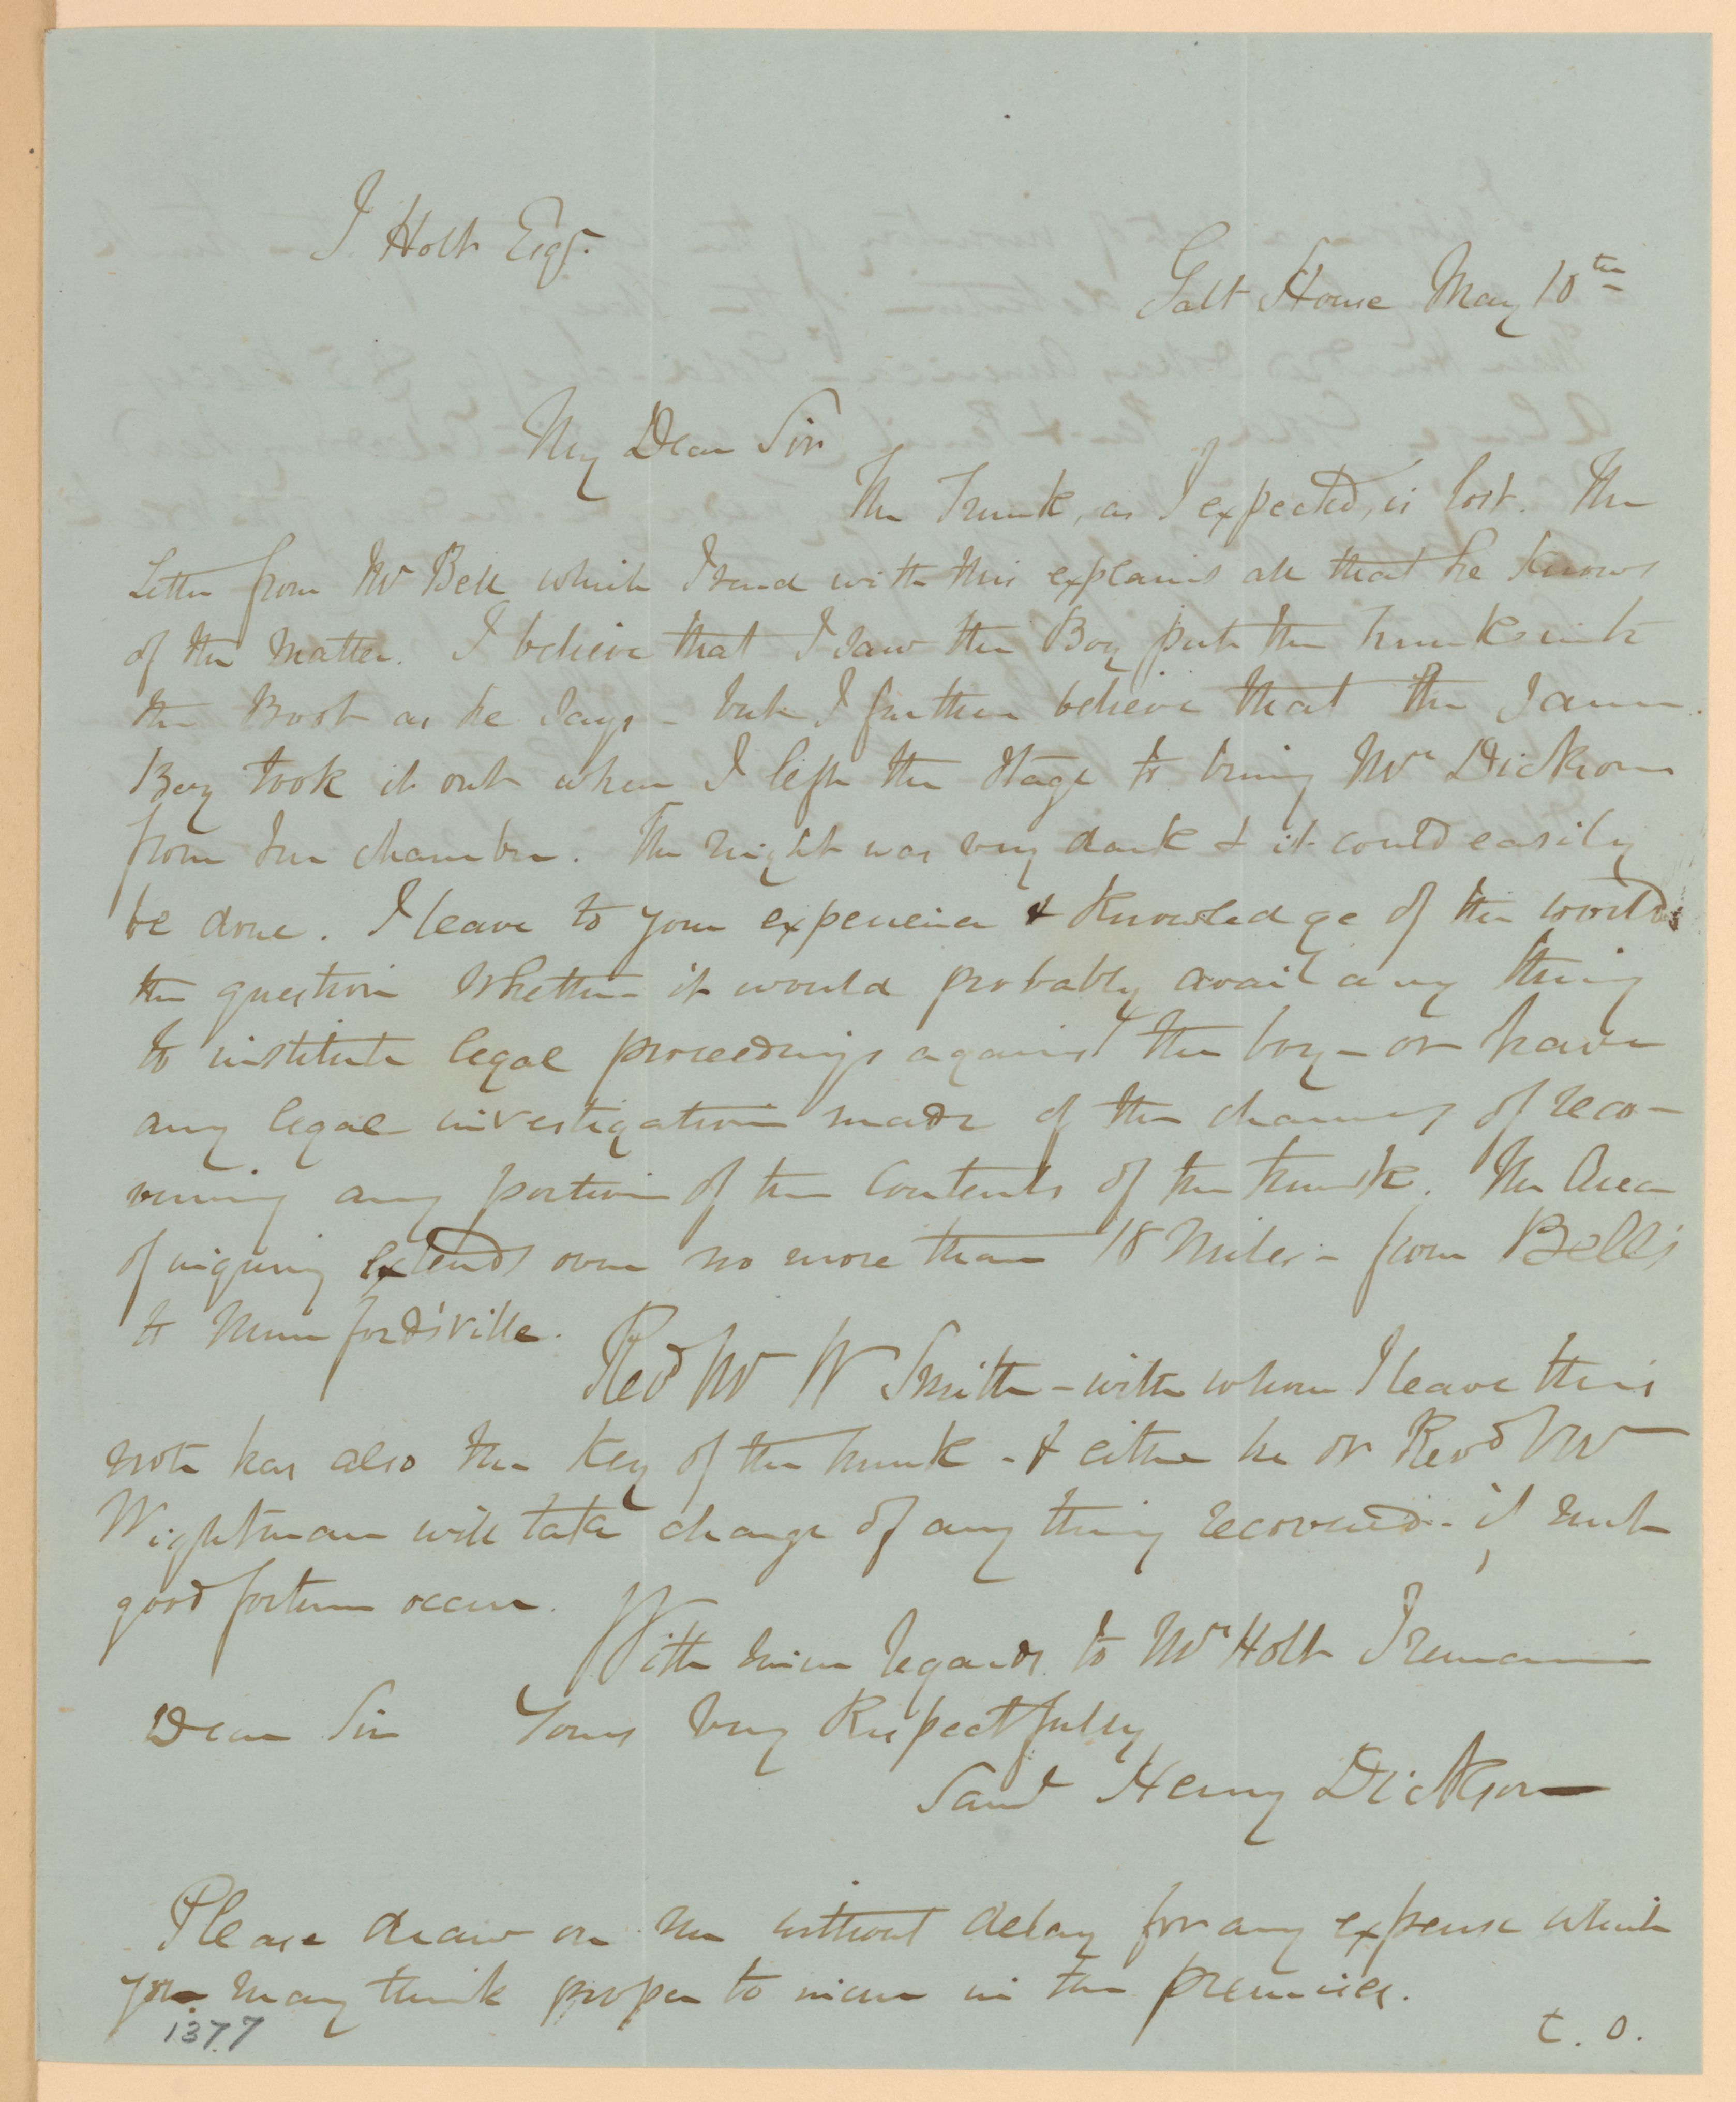 J Holt Esqr.
Galt House May 10th
My Dear Sir
The Trunk, as I expected, is lost. The
Letter from Mr Bell which I send with this explains all that he knows
of the matter. I believe that I saw the Boy put the trunks into
the Boot as he says - but I further believe that the same
Boy took it out when I left the Stage to bring Mrs Dickson
from her chamber. The night was very dark & it could easily
be done. I leave to your experience & knowledge of the world
the question whether it would probably avail any thing
to institute legal proceedings against the boy - or have
any legal investigation made of the chances of reco-
vering any portion of the contents of the trunk. The Area
of inquiry extends over no more than 18 Miles - from Bell's
to Munfordsville.
Revd Mr W Smith - with whom I leave this
note has also the key of the trunk - & either he or Revd Mr
Wightman will take charge of any thing recovered - if such
good fortune occur.
With kind regards to Mrs Holt I remain
Dear Sir Yours very Respectfully
Saml Henry Dickson
Please draw on me without delay for any expense which
you may think proper to incur in the premises.
1377
t. o.